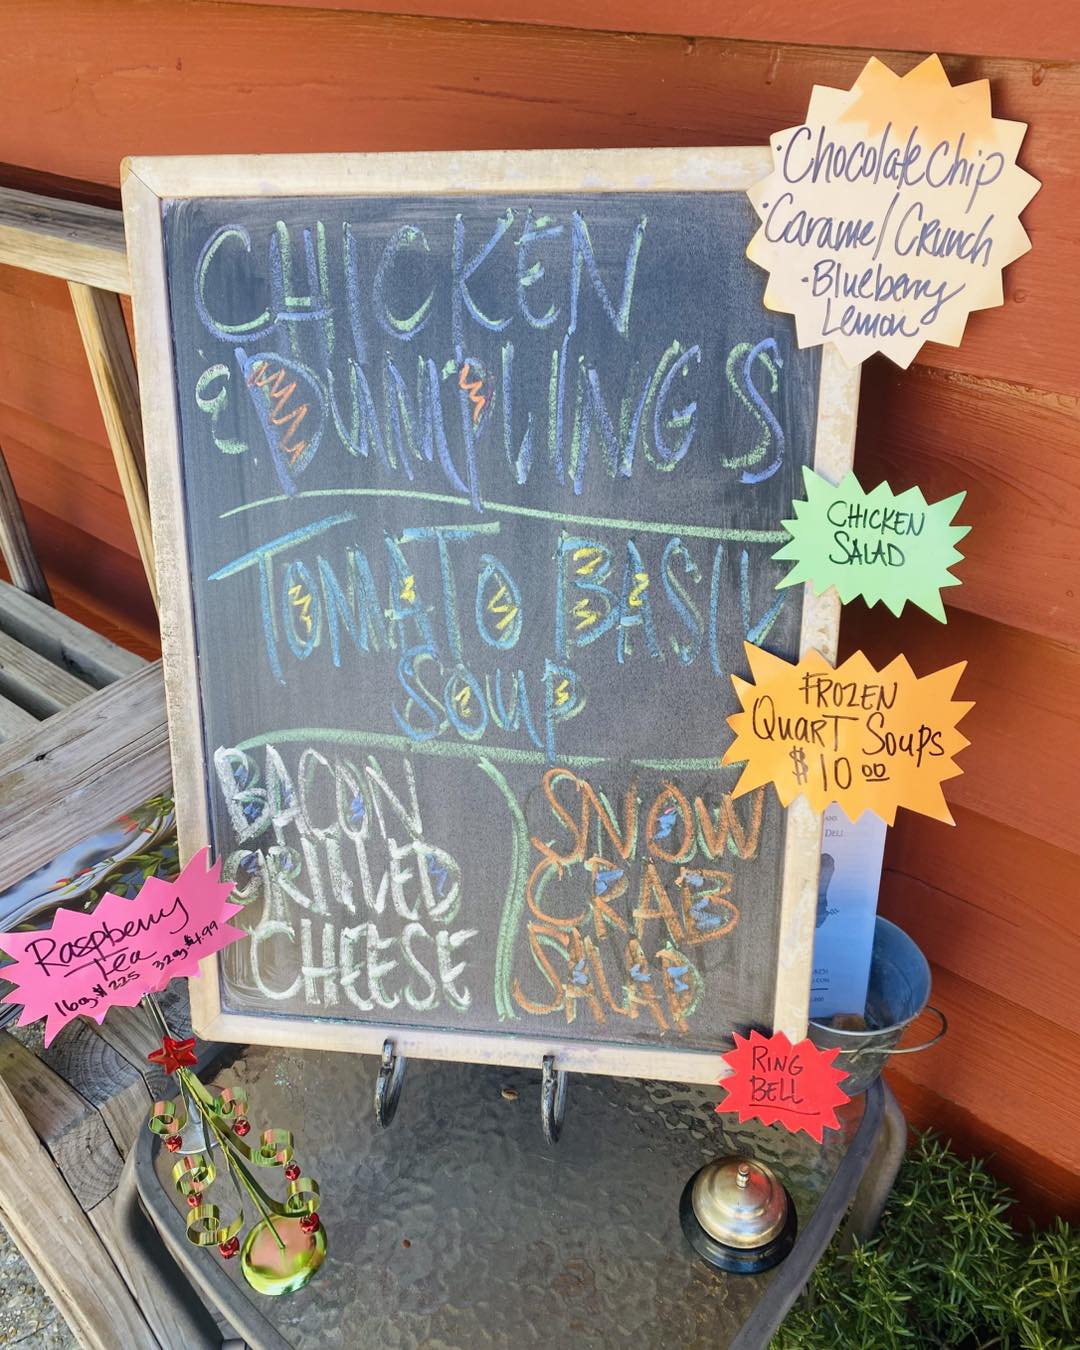 CHICKEN
& DUMPLINGS
TOMATO BASIL
SOUP
BACON
GRILLED
CHEESE
SNOW
CRAB
SALAD
·Chocolate Chip
·Caramel Crunch
·Blueberry
Lemon
CHICKEN
SALAD
FROZEN
QUART SOUPS
$10 00
DELI
Raspberry
Tea
16oz $2.25 32oz $4.99
RING
BELL